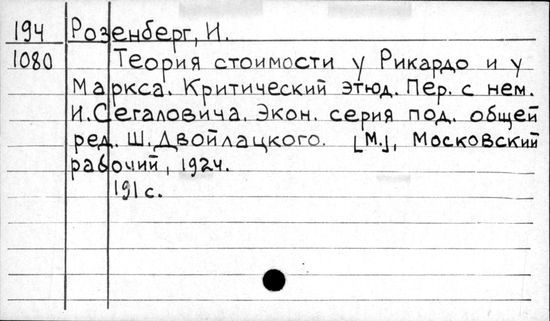 194 Розенберг, И.
1080 Теория стоимости у Рикардо и у
Маркса. Критический этюд. Пер. с нем.
И. Сегаловича. Экон. серия под. общей
ред. Ш. Двойлацкого. [М.], Московский
рабочий, 1924.
191 с.